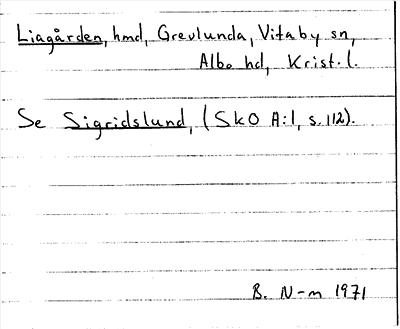 Liagården, hmd, Grevlunda, Vitaby sn,
Albo hd, Krist. l.
Se Sigridslund, (SkO A:1, s. 112).
B. N-m 1971